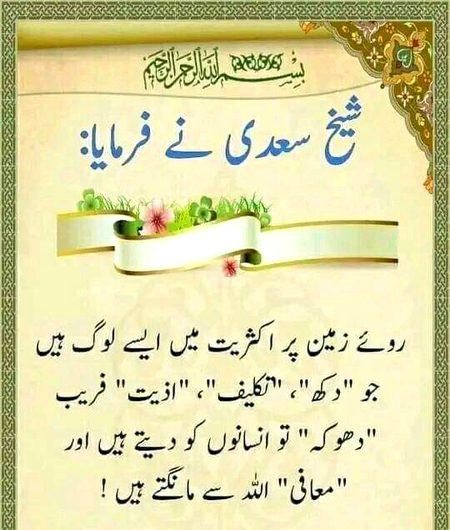 بسم الله الرحمن الرحيم
شیخ سعدی نے فرمایا:
روئے زمین پر اکثریت میں ایسے لوگ ہیں
جو "دکھ"، "تکلیف"، "اذیت" فریب
"دھوکہ" تو انسانوں کو دیتے ہیں اور
"معافی" اللہ سے مانگتے ہیں !